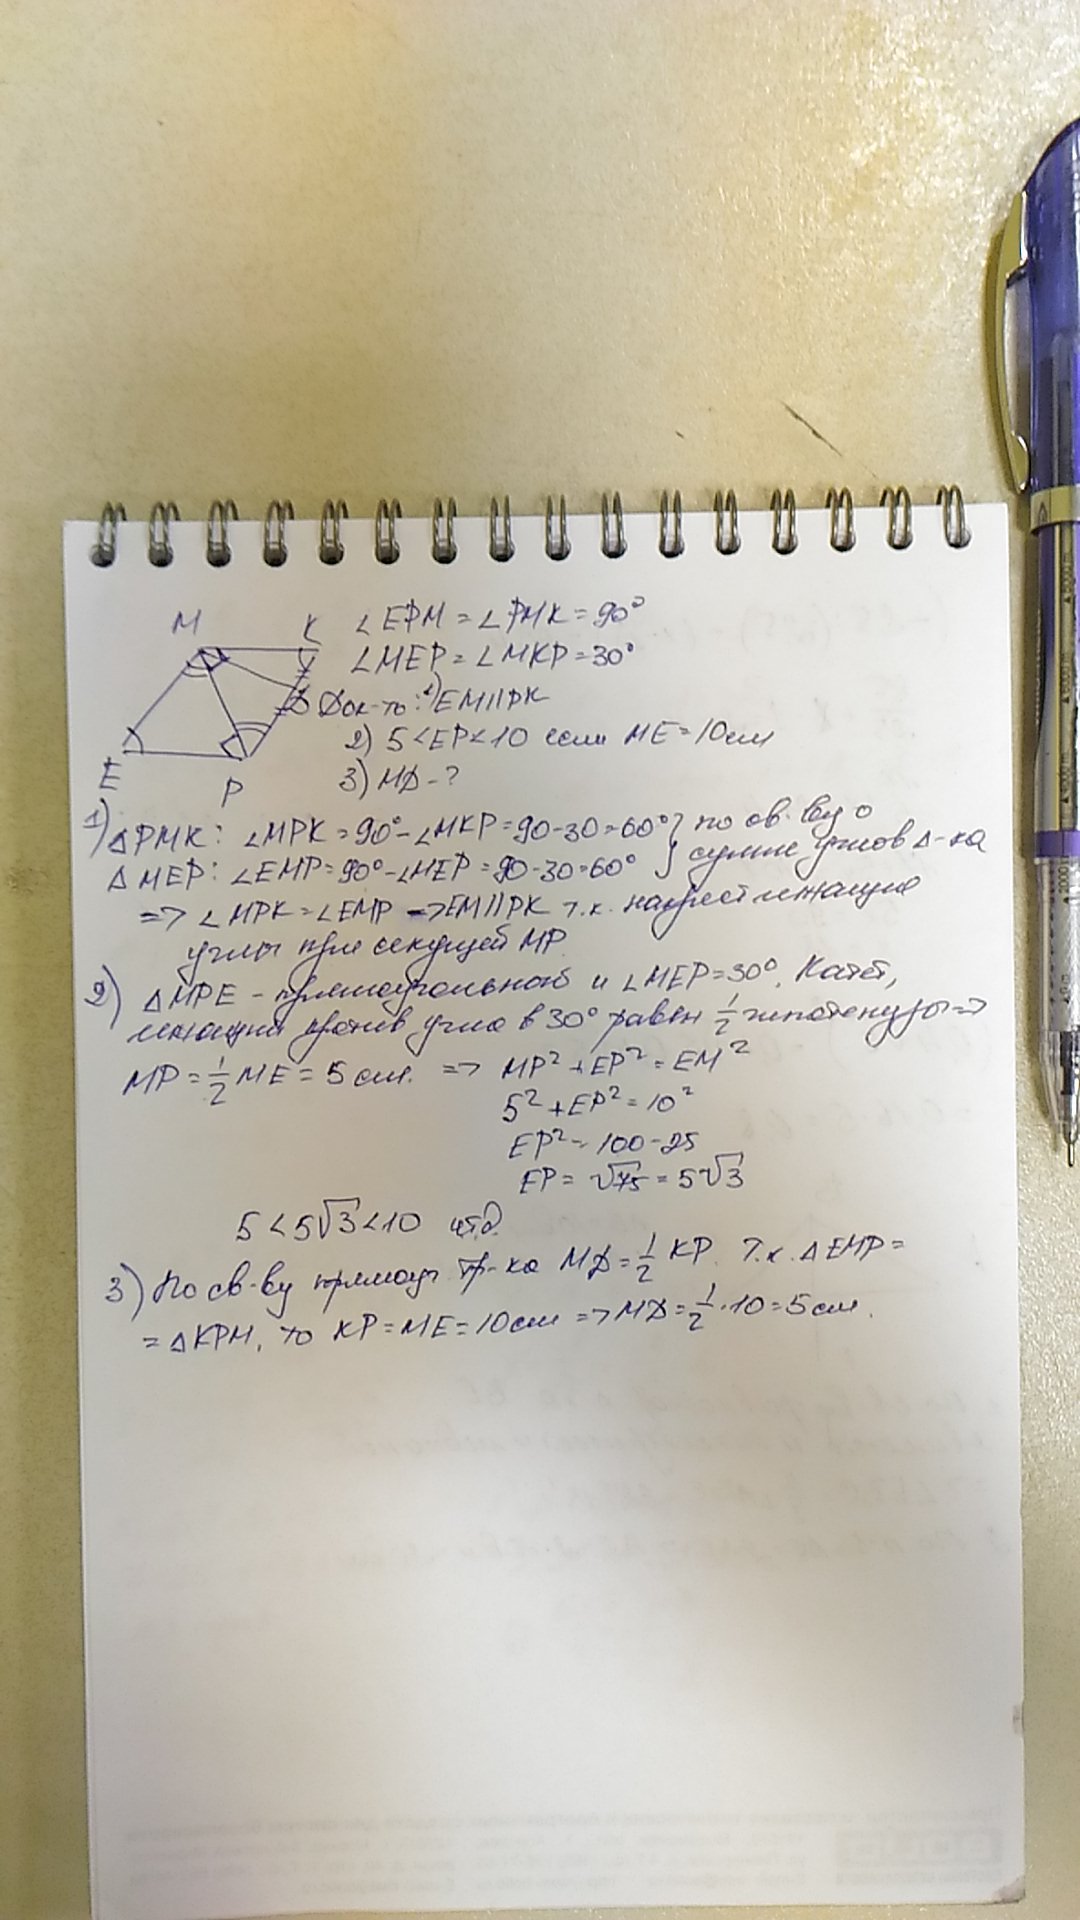 M K ∠EPM = ∠PMK = 90°
∠MEP = ∠MKP = 30°
D Док-ть: 1) EM||PK
2) 5 < EP < 10 если ME = 10см
E P 3) MD - ?
1) △PMK: ∠MPK = 90° - ∠MKP = 90-30 = 60° } по св-ву о
△MEP: ∠EMP = 90° - ∠MEP = 90-30 = 60° } сумме углов △-ка
=> ∠MPK = ∠EMP => EM||PK т.к. накрест лежащие
углы при секущей MP.
2) △MPE - прямоугольный и ∠MEP = 30°. Катет,
лежащий против угла в 30° равен 1/2 гипотенузы =>
MP = 1/2 ME = 5 см. => MP² + EP² = EM²
5² + EP² = 10²
EP² = 100 - 25
EP = √75 = 5√3
5 < 5√3 < 10 чтд.
3) По св-ву прямоуг. тр-ка MD = 1/2 KP. Т.к. △EMP =
= △KPM, то KP = ME = 10см => MD = 1/2 · 10 = 5 см.